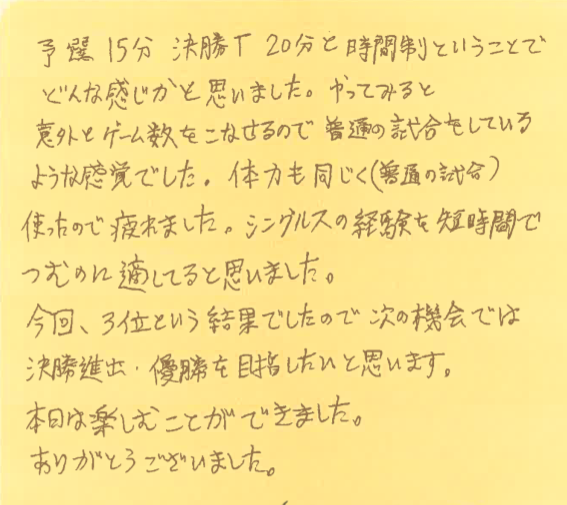 予選 15分 決勝T 20分と時間制ということで
どんな感じかと思いました。やってみると
意外とゲーム数をこなせるので普通の試合をしている
ような感覚でした。体力も同じく(普通の試合)
使ったので疲れました。シングルスの経験を短時間で
つむのに適してると思いました。
今回、3位という結果でしたので次の機会では
決勝進出・優勝を目指したいと思います。
本日は楽しむことができました。
ありがとうございました。